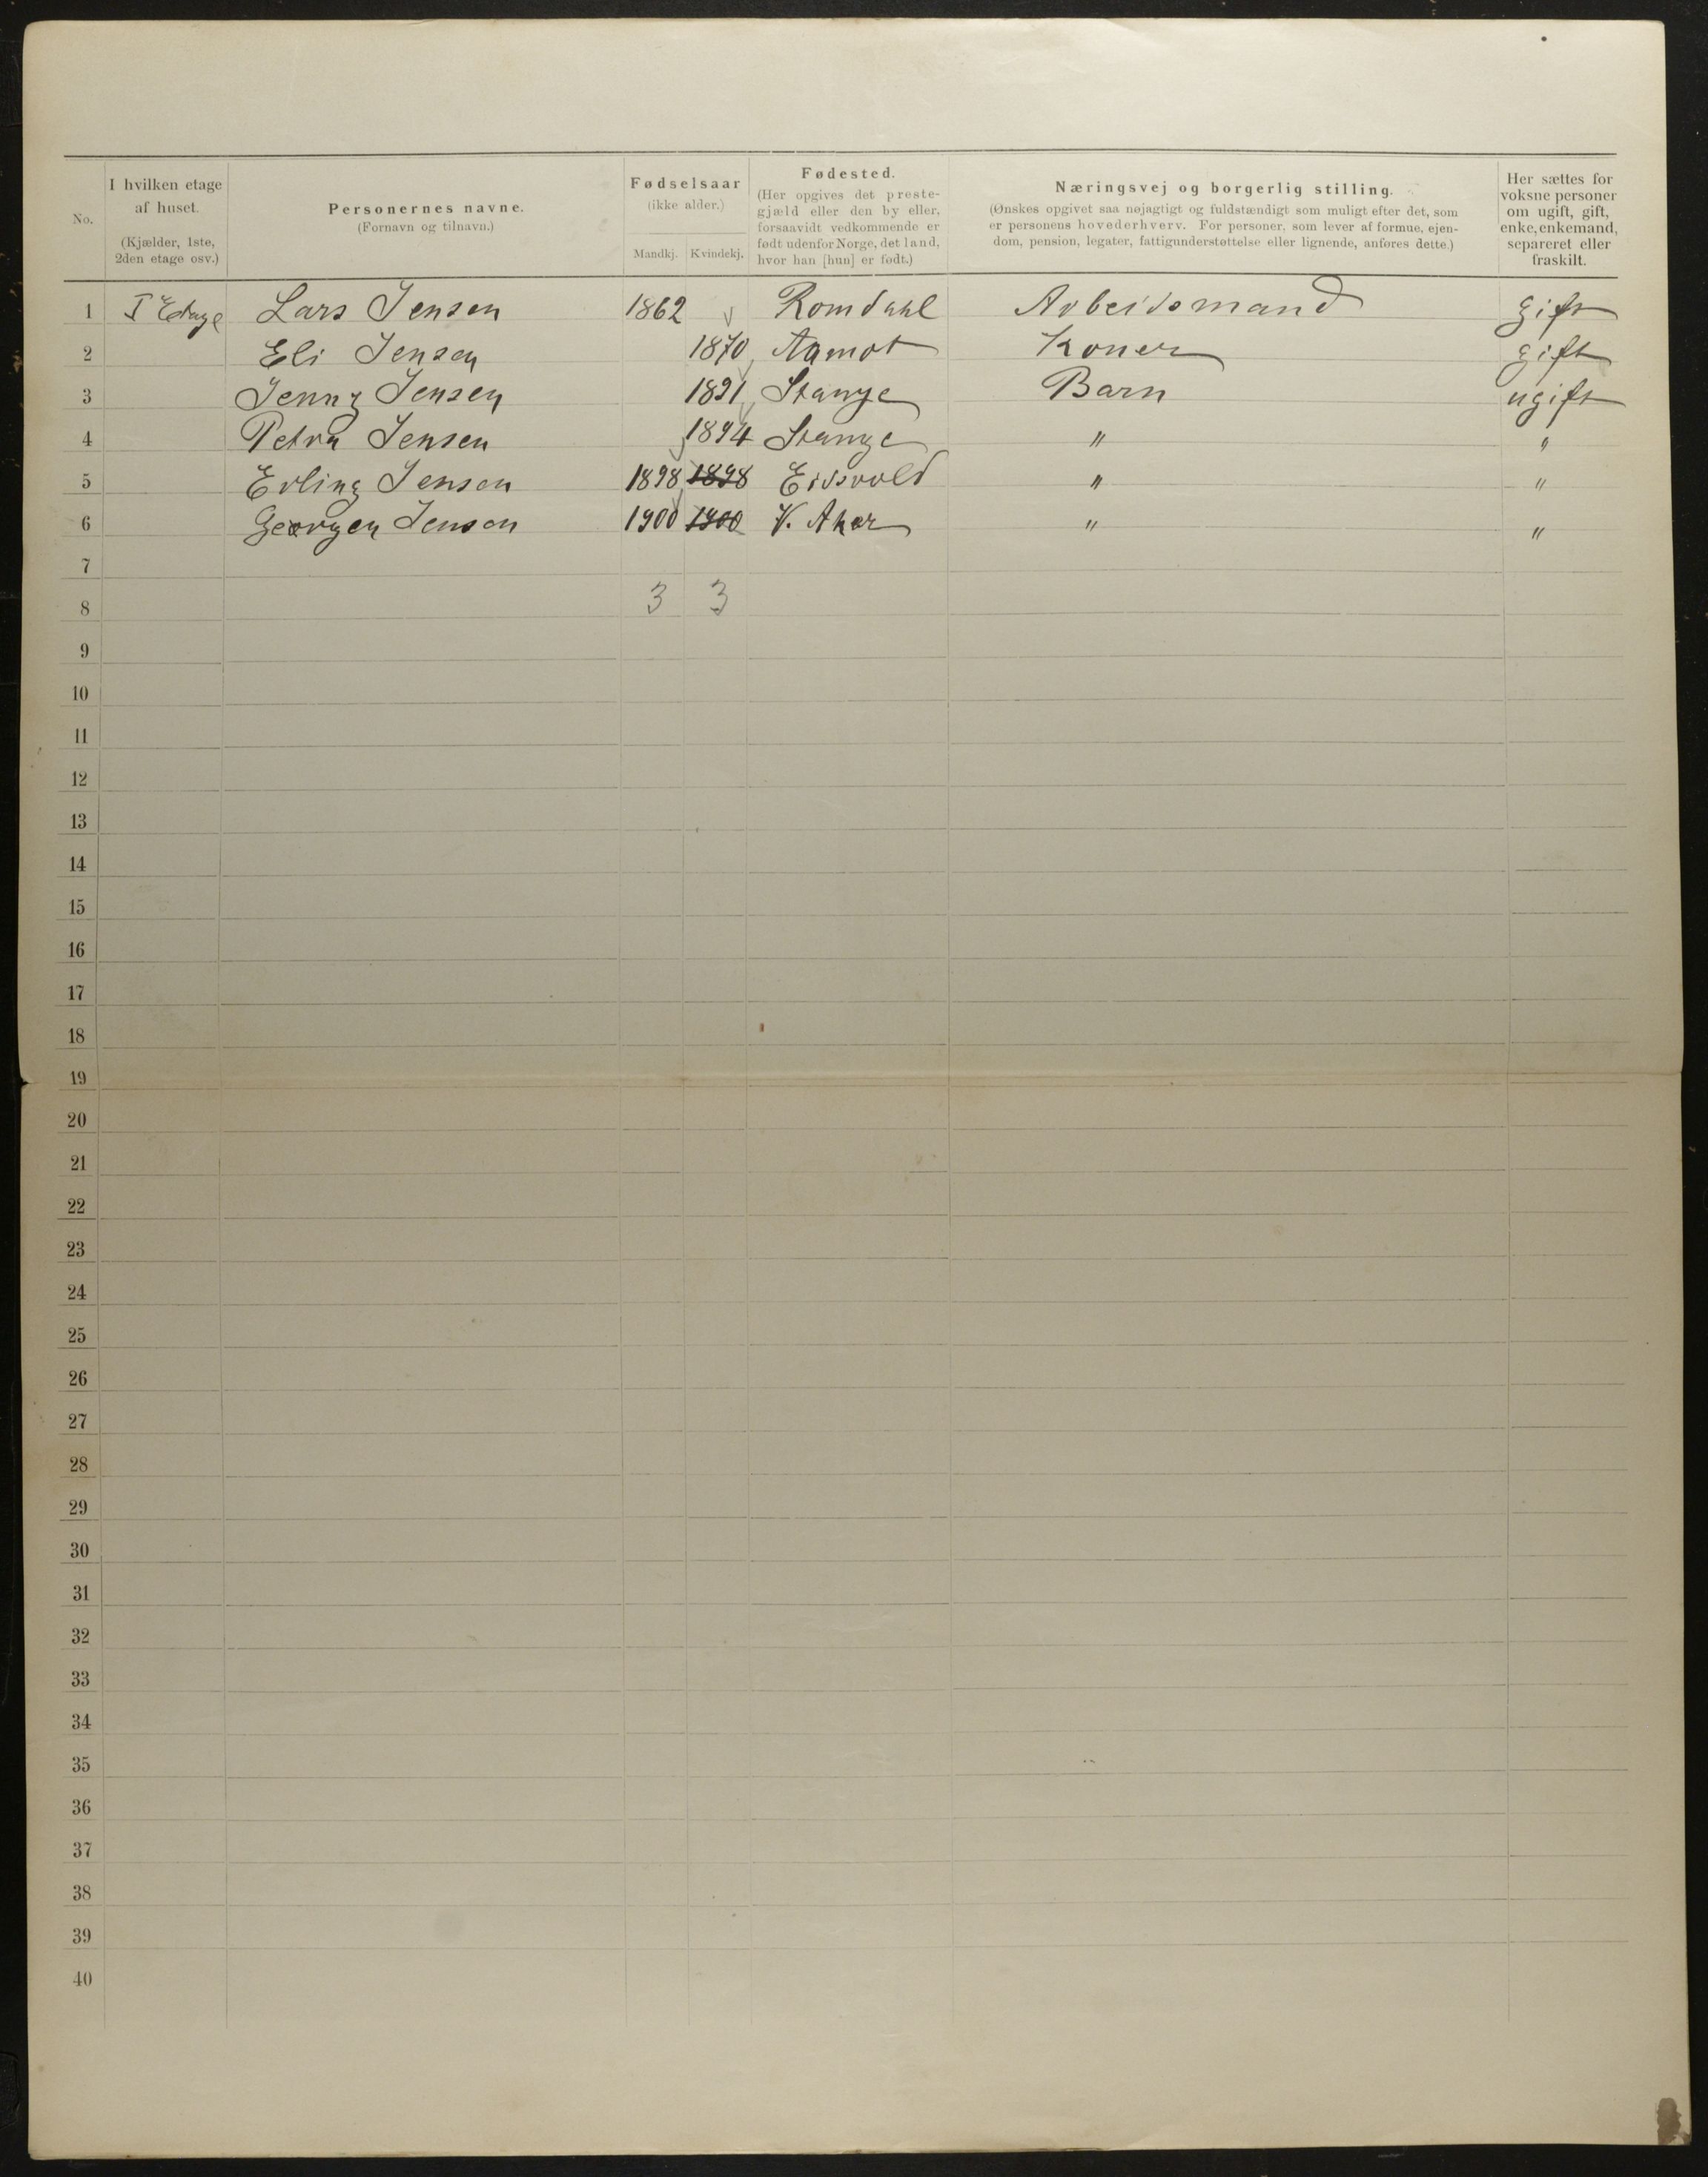 No.
I hvilken etage
af huset.
(Kjælder, 1ste,
2den etage osv.)
Personernes navne.
(Fornavn og tilnavn.)
Fødselsaar
(ikke alder.)
Mandkj. Kvindekj.
Fødested.
(Her opgives det preste-
gjæld eller den by eller,
forsaavidt vedkommende er
født udenfor Norge, det land,
hvor han [hun] er født.)
Næringsvej og borgerlig stilling.
(Ønskes opgivet saa nøjagtigt og fuldstændigt som muligt efter det, som
er personens hovederhverv. For personer, som lever af formue, ejen-
dom, pension, legater, fattigunderstøttelse eller lignende, anføres dette.)
Her sættes for
voksne personer
om ugift, gift,
enke, enkemand,
separeret eller
fraskilt.
1 I Etage Lars Jensen 1862 Romdahl Arbeidsmand gift
2 Eli Jensen 1870 Aamot Koner gift
3 Jenny Jensen 1891 Stange Barn ugift
4 Petra Jensen 1894 Stange " "
5 Erling Jensen 1898 1898 Eidsvold " "
6 Georgen Jensen 1900 1900 V. Aker " "
7
8 3 3
9
10
11
12
13
14
15
16
17
18
19
20
21
22
23
24
25
26
27
28
29
30
31
32
33
34
35
36
37
38
39
40